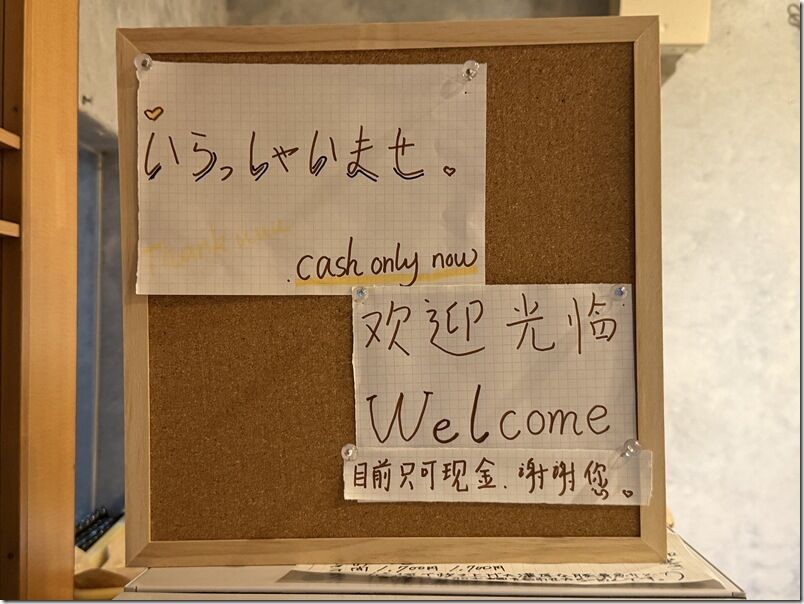 いらっしゃいませ。
Thank you
cash only now
欢迎光临
Welcome
目前只可现金、谢谢您。
1,700円 1,900円